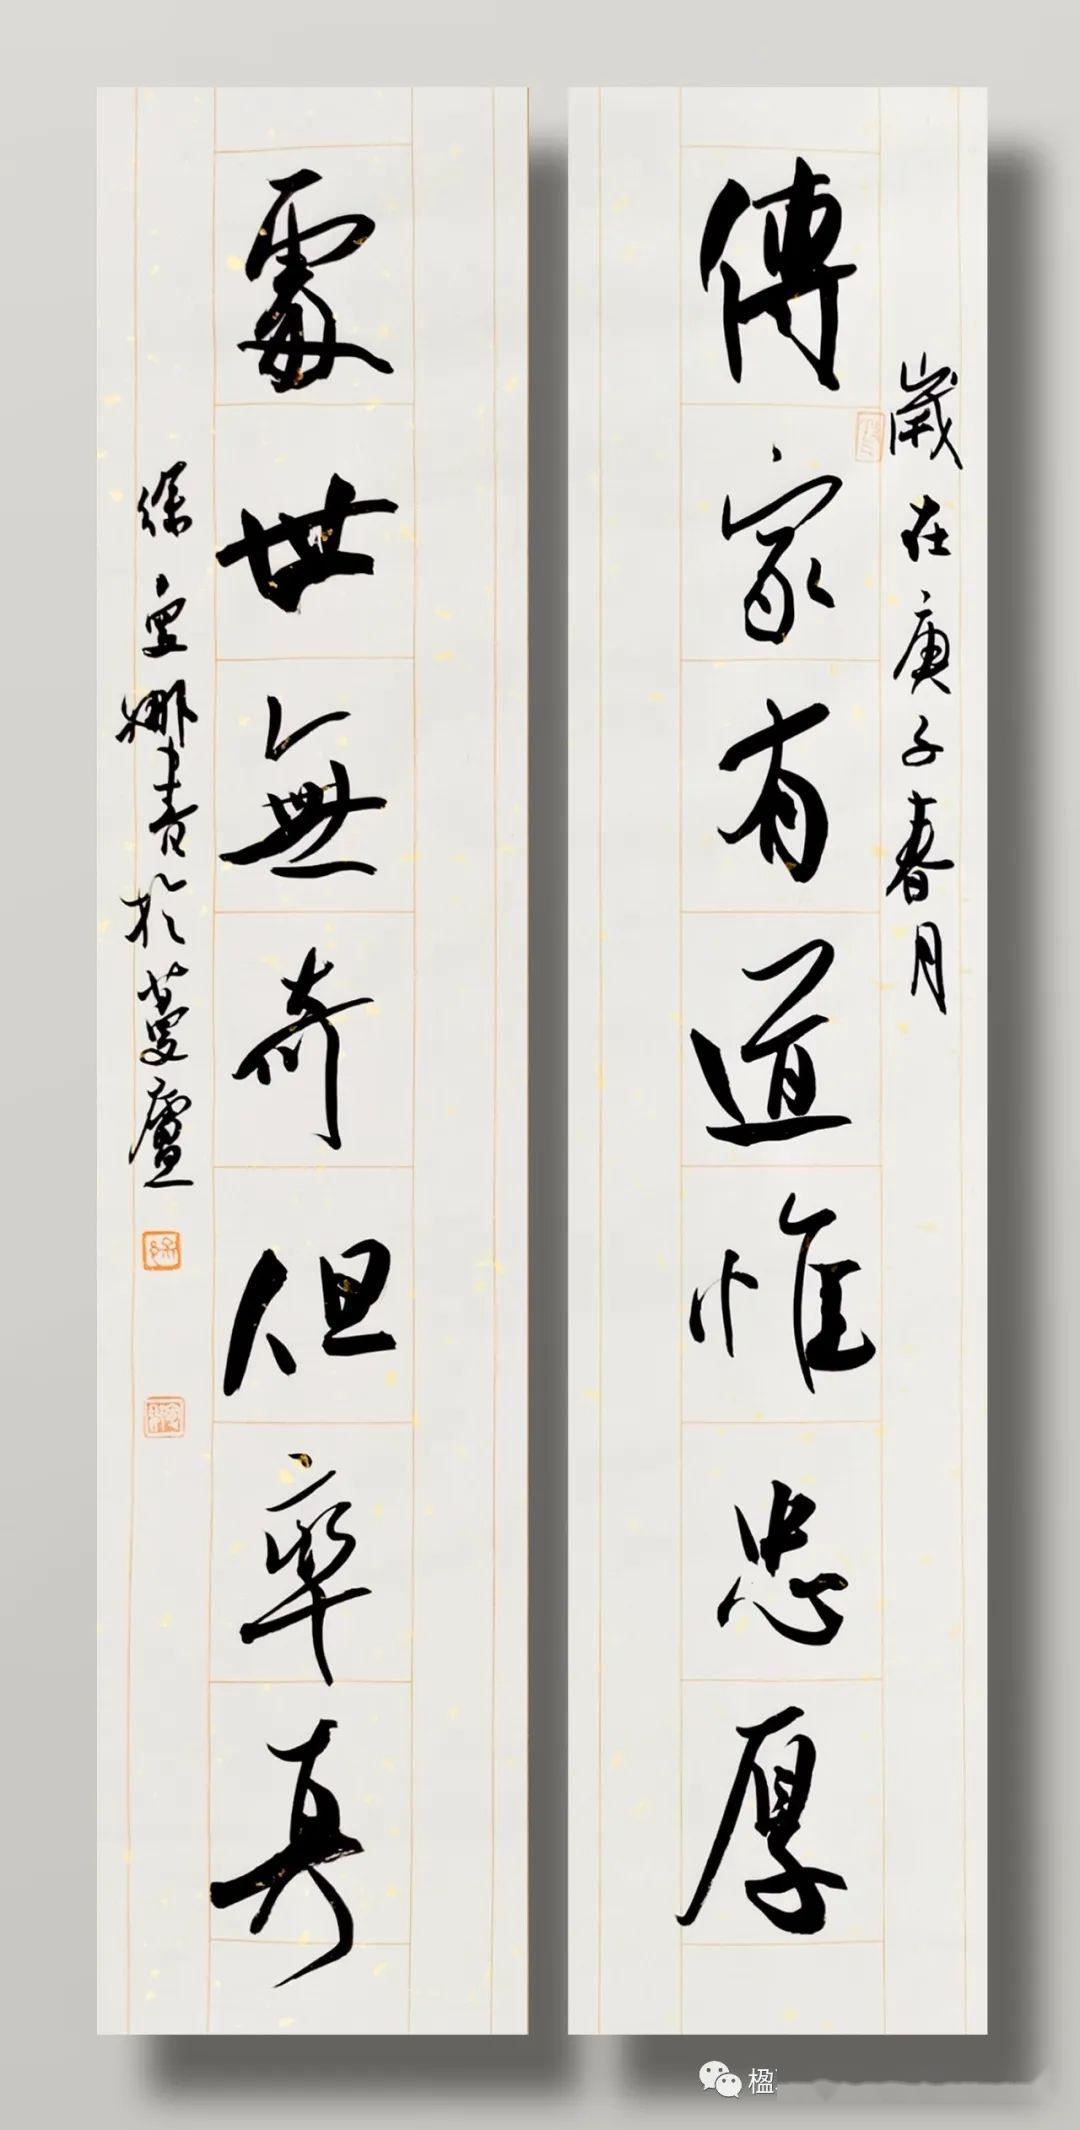 歲在庚子春月
傳家有道惟忠厚
處世無奇但率真
徐亞娜書於蔓廬
楹